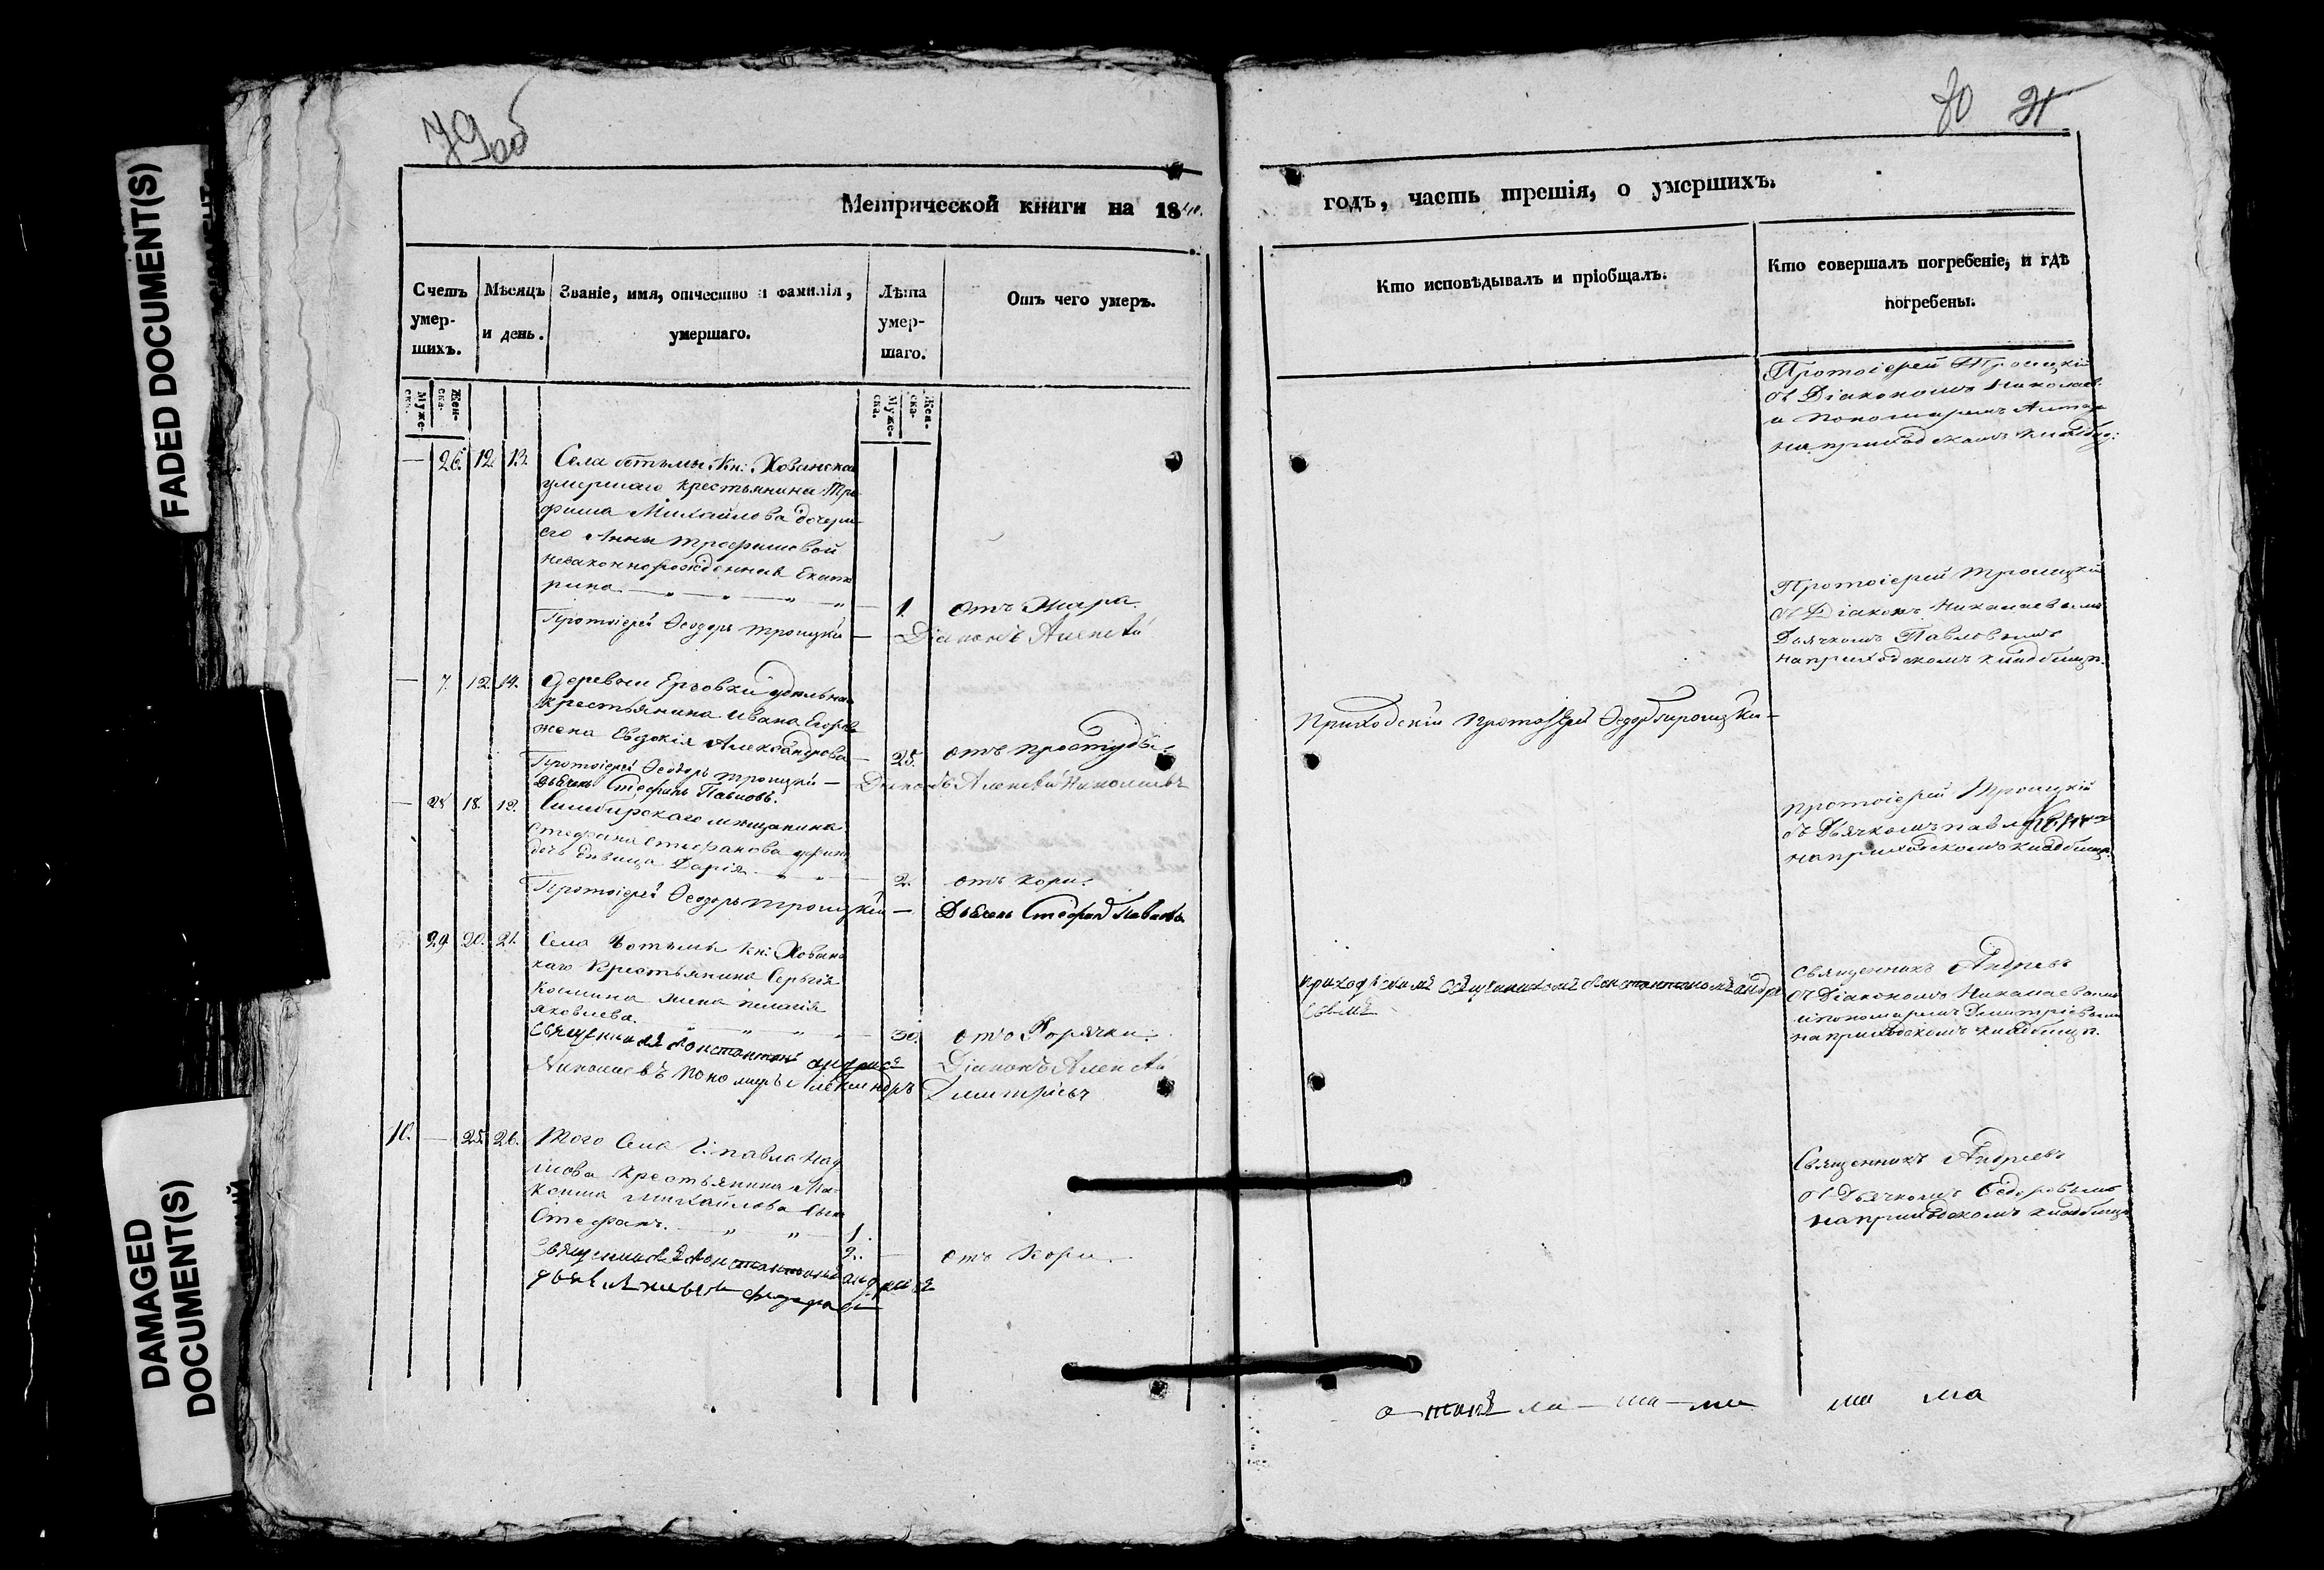 FADED DOCUMENT(S)
DAMAGED
DOCUMENT(S)
79об
Метрической книги на 1840.
Счетъ умер-шихъ.
Мѣсяцъ и день.
Званіе, имя, отчество и фамилія, умершаго.
Лѣта умер-шаго.
Отъ чего умеръ.
Муже-ска.
Жен-ска.
Муже-ска.
Жен-ска.
— 26. 12. 13. Села Кн: Хованскаго
умершаго крестьянина Тро-
фима Михайлова дочери
его Анны Трофимовой
незаконнорожденная Екате
рина — 1. отъ жара.
Протоіерей Ѳеодоръ Троицкій — Діаконъ Алексѣй
— 7. 12. 14. Деревни удѣльнаго
крестьянина Ивана Егорова
жена Евдокія Александрова — 25. отъ простуды.
Протоіерей Ѳеодоръ Троицкій — Діаконъ Алексѣй Николаевъ
Дьячекъ Стефанъ Павловъ.
— 28. 18. 19. Симбирскаго мѣщанина
Стефана Стефанова
дочь дѣвица Дарія — 2. отъ кори.
Протоіерей Ѳеодоръ Троицкій — Дьячекъ Стефанъ Павловъ
29. 20. 21. Села Кн: Хованс
каго крестьянина Сергія
Космина жена Пелагія
Яковлева. — 30. отъ Горячки.
Священникъ Константинъ Андреевъ Діаконъ Алексѣй
Николаевъ Пономарь Александръ Дмитріевъ
10. — 25. 26. Того Села Г. Павла
крестьянина Ма-
ксима Михайлова сынъ
Стефанъ. — 1.
2. — отъ Кори.
Священникъ Константинъ Андреевъ
дьячекъ Федоровъ
70 21
годъ, часть третія, о умершихъ.
Кто исповѣдывалъ и пріобщалъ.
Кто совершалъ погребеніе, и гдѣ погребены.
Протоіерей Троицкій
съ Діакономъ Николаев.
и пономаремъ
на приходскомъ кладби:
Протоіерей Троицкій
съ Діакон. Николаевымъ
Дьячкомъ Павловымъ
на приходскомъ кладбищѣ.
Приходскій Протоіерей Ѳеодоръ Троицкій —
Протоіерей Троицкій
съ Дьячкомъ Павловымъ
на приходскомъ кладбищѣ.
Приходскимъ Священникомъ Константиномъ Андре
евымъ
Священникъ Андреевъ
съ Діакономъ Николаевымъ
и пономаремъ Дмитріевымъ
на приходскомъ кладбищѣ.
Священникъ Андреевъ
съ Дьячкомъ Федоровымъ
на приходскомъ кладбищѣ